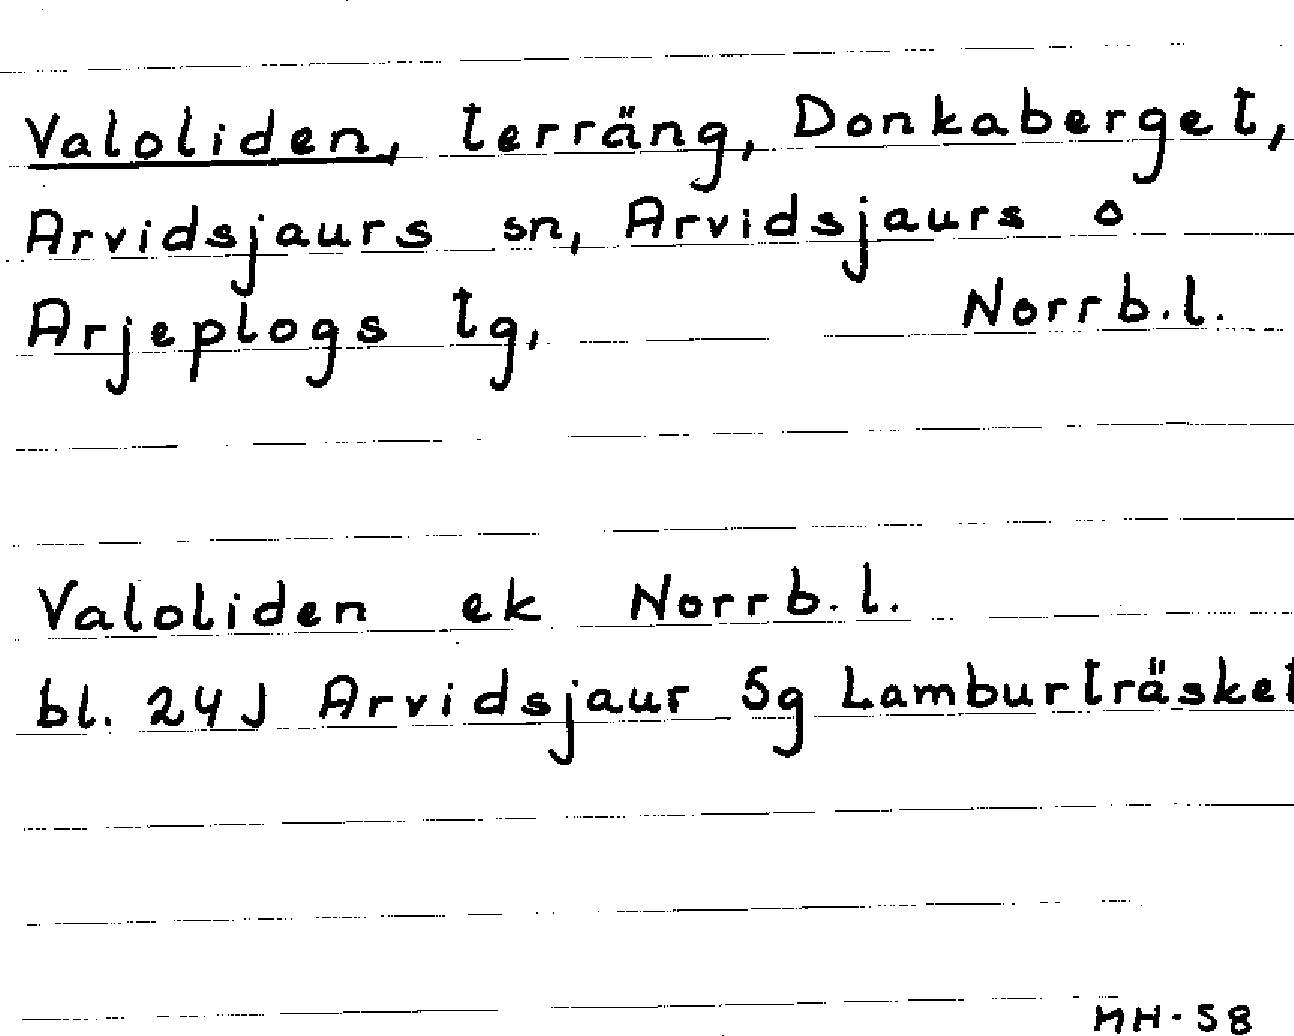 Valoliden, terräng, Donkaberget,
Arvidsjaurs sn, Arvidsjaurs o
Arjeplogs tg, Norrb.l.
Valoliden ek Norrb.l.
bl. 24J Arvidsjaur 5g Lamburträsket
MH-58